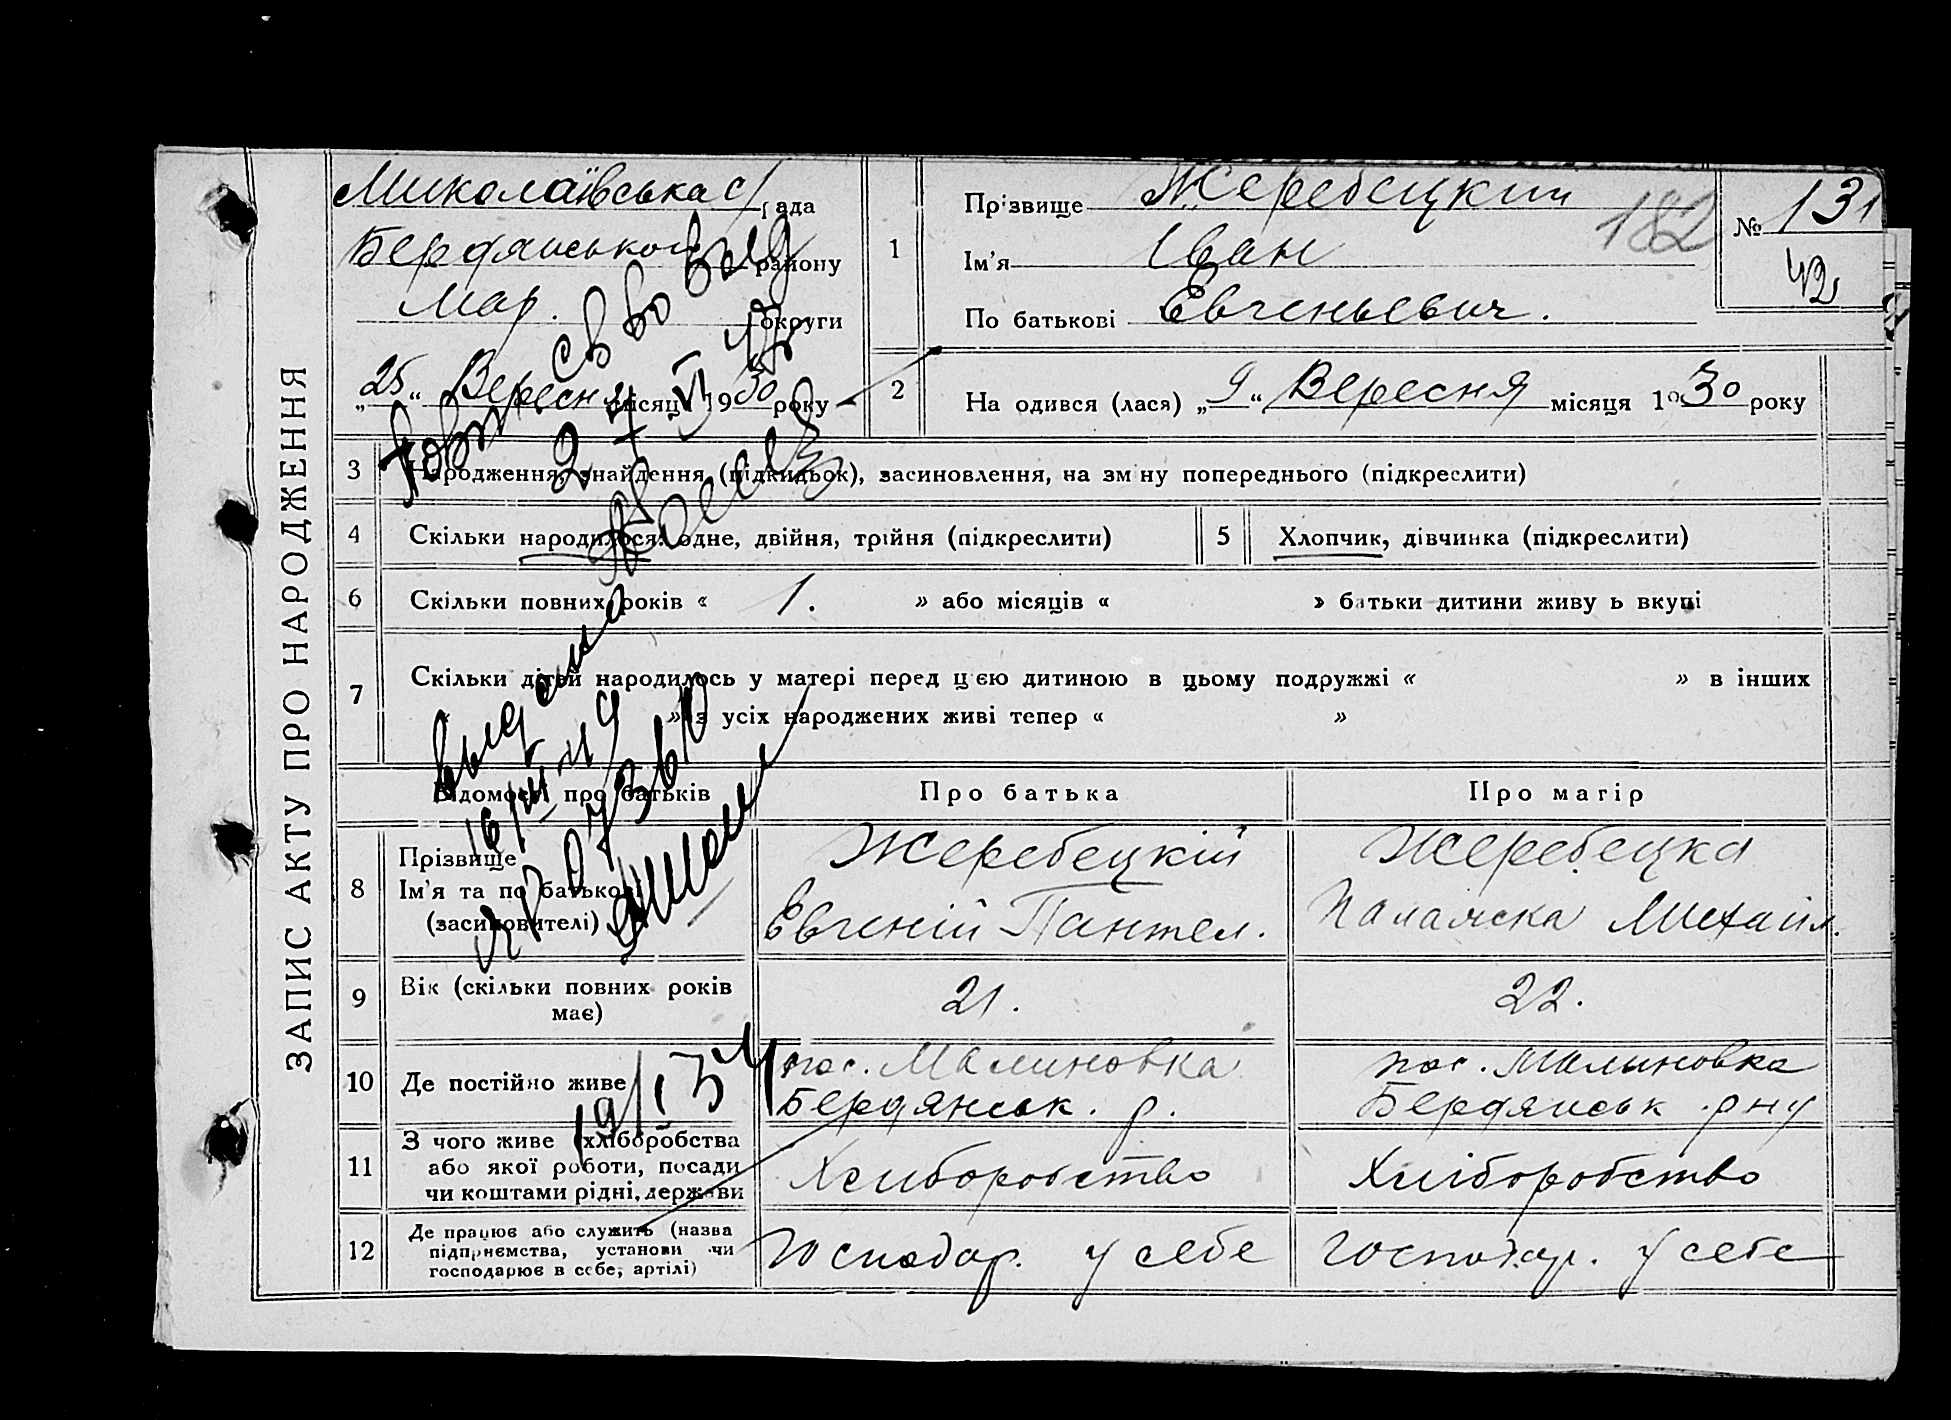 ЗАПИС АКТУ ПРО НАРОДЖЕННЯ
Миколаївська с/рада
Бердянського району
Мар. округи
„25“ Вересня місяця 1930 року
1
Прізвище Жеребецкий
Ім'я Іван
По батькові Евгеньевич.
182
№ 131
42
2
На одився (лася) „9“ Вересня місяця 1930 року
3 Народження, знайдення (підкидьок), засиновлення, на зміну попереднього (підкреслити)
4 Скільки народилося: одне, двійня, трійня (підкреслити)
5 Хлопчик, дівчинка (підкреслити)
6 Скільки повних років « 1. » або місяців « » батьки дитини живуть вкупі
7 Скільки дітей народилось у матері перед цією дитиною в цьому подружжі « » в інших
« » із усіх народжених живі тепер « »
Відомості про батьків
Про батька
Про матір
8 Прізвище
Ім'я та по батькові
(засиновителі)
Жеребецкій
Евгеній Пантел.
Жеребецка
Палажка Михайл.
9 Вік (скільки повних років
має)
21.
22.
10 Де постійно живе
пос. Малиновка
Бердянськ. р.
пос. Малиновка
Бердянськ. рну
11 З чого живе (хліборобства
або якої роботи, посади
чи коштами рідні, держави
Хлиборобство
Хліборобство
12 Де працює або служить (назва
підприємства, установи чи
господарює в себе, артілі)
Господар. у себе
господар. у себе
19/I 34